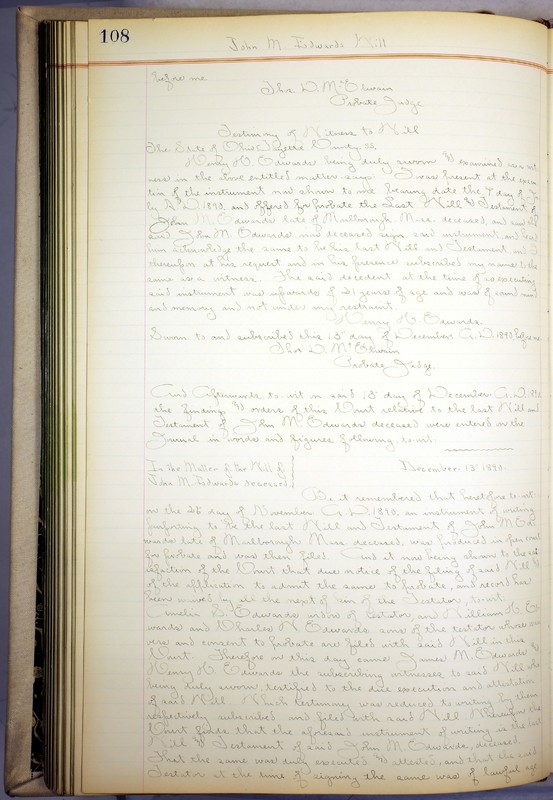 108
John M. Edwards Will
before me
Thos D. McElwain
Probate Judge
Testimony of Witness to Will
The State of Ohio Fayette County, SS,
Henry H. Edwards being duly sworn & examined as a wit-
ness in the above entitled matter says: I was present at the execu-
tion of the instrument now shown to me bearing date the 7 day of
by A.D. 1890, and offered for probate the Last Will & Testament of
John M. Edwards late of Mass. deceased, and saw
said John M. Edwards now deceased sign said instrument, and heard
him acknowledge the same to be his last Will and Testament, and I
thereupon at his request and in his presence subscribed my name to the
same as a witness. The said decedent at the time of so executing
said instrument was upwards of 21 years of age and was of sound mind
and memory and not under any restraint.
Henry H. Edwards.
Sworn to and subscribed this 13 day of December A.D. 1890 before me
Thos D. McElwain
Probate Judge
And Afterwards, to-wit on said 13 day of December A.D. 1890
the findings & orders of this Court relative to the last Will and
Testament of John M. Edwards deceased were entered on the
Journal in words and figures following, to-wit:
In the Matter of the Will of
John M. Edwards deceased
December 13 1890.
Be it remembered that heretofore to-wit:
on the 25 day of November A.D. 1890, an instrument of writing
purporting to be the last Will and Testament of John M. Ed-
wards late of Mass deceased, was produced in open court
for probate and was then filed. And it now being shown to the sat-
isfaction of the Court that due notice of the filing of said Will &
of the application to admit the same to probate, and record has
been waived by all the next of kin of the Testator, to-wit:
Amelia S. Edwards widow of testator, and William H. Ed-
wards and Charles N. Edwards sons of the testator whose
and consent to probate are filed with said Will in this
Court. Therefore on this day came James M. Edwards &
Henry H. Edwards the subscribing witnesses to said Will who
being duly sworn, testified to the due execution and attestation
of said Will. Which testimony was reduced to writing by them
respectively subscribed and filed with said Will. Whereupon the
Court finds that the aforesaid instrument of writing is the last
Will & Testament of said John M. Edwards, deceased.
That the same was duly executed & attested, and that the said
Testator at the time of signing the same was of lawful age